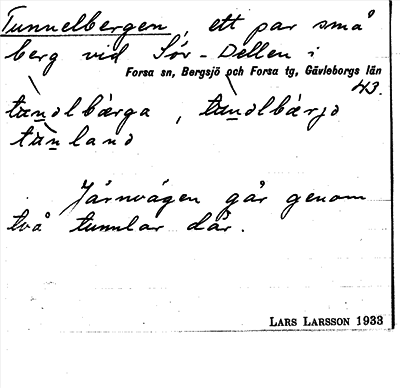 Tunnelbergen, ett par små
berg vid Sör-Dellen i
Forsa sn, Bergsjö och Forsa tg, Gävleborgs län
43.
Järnvägen går genom
två tunnlar där.
LARS LARSSON 1933